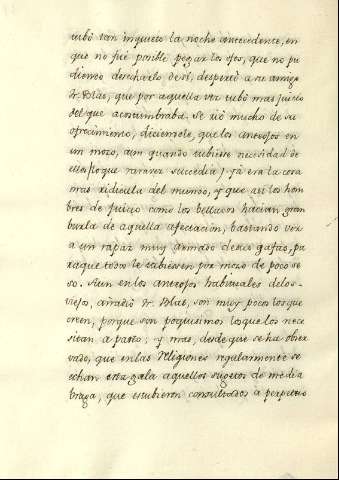 tubò tan inquieto la noche antecedente, en
que no fuè posible pegar los ojos, que no pu
diendo desecharlo de sí, despertò a su amigo
Fr. Blas, que por aquella vez tubo mas juicio
del que acostumbraba. Se riò mucho de su
ofrecimiento, diciendole, que los anteojos en
un mozo, aun quando tubiese necesidad de
ellos (lo que rara vez succedia) yà era la cosa
mas ridicula del mundo, y que asi los hom
bres de juicio como los bellacos hacian gran
burla de aquella afectacion, bastando ver
a un rapàz muy armado de sus gafas, pa
ra que todos le tubiesen por mozo de poco se
so. Aun en los anteojos habituales de los
viejos, añadiò Fr. Blas, son muy pocos los que
creen, porque son poquisimos los que los nece
sitan a pasto; y mas, desde que se ha obser
vado, que en las Religiones regularmente se
echan esta gala aquellos sugetos de media
braga, que estubieron consultados a perpetuo